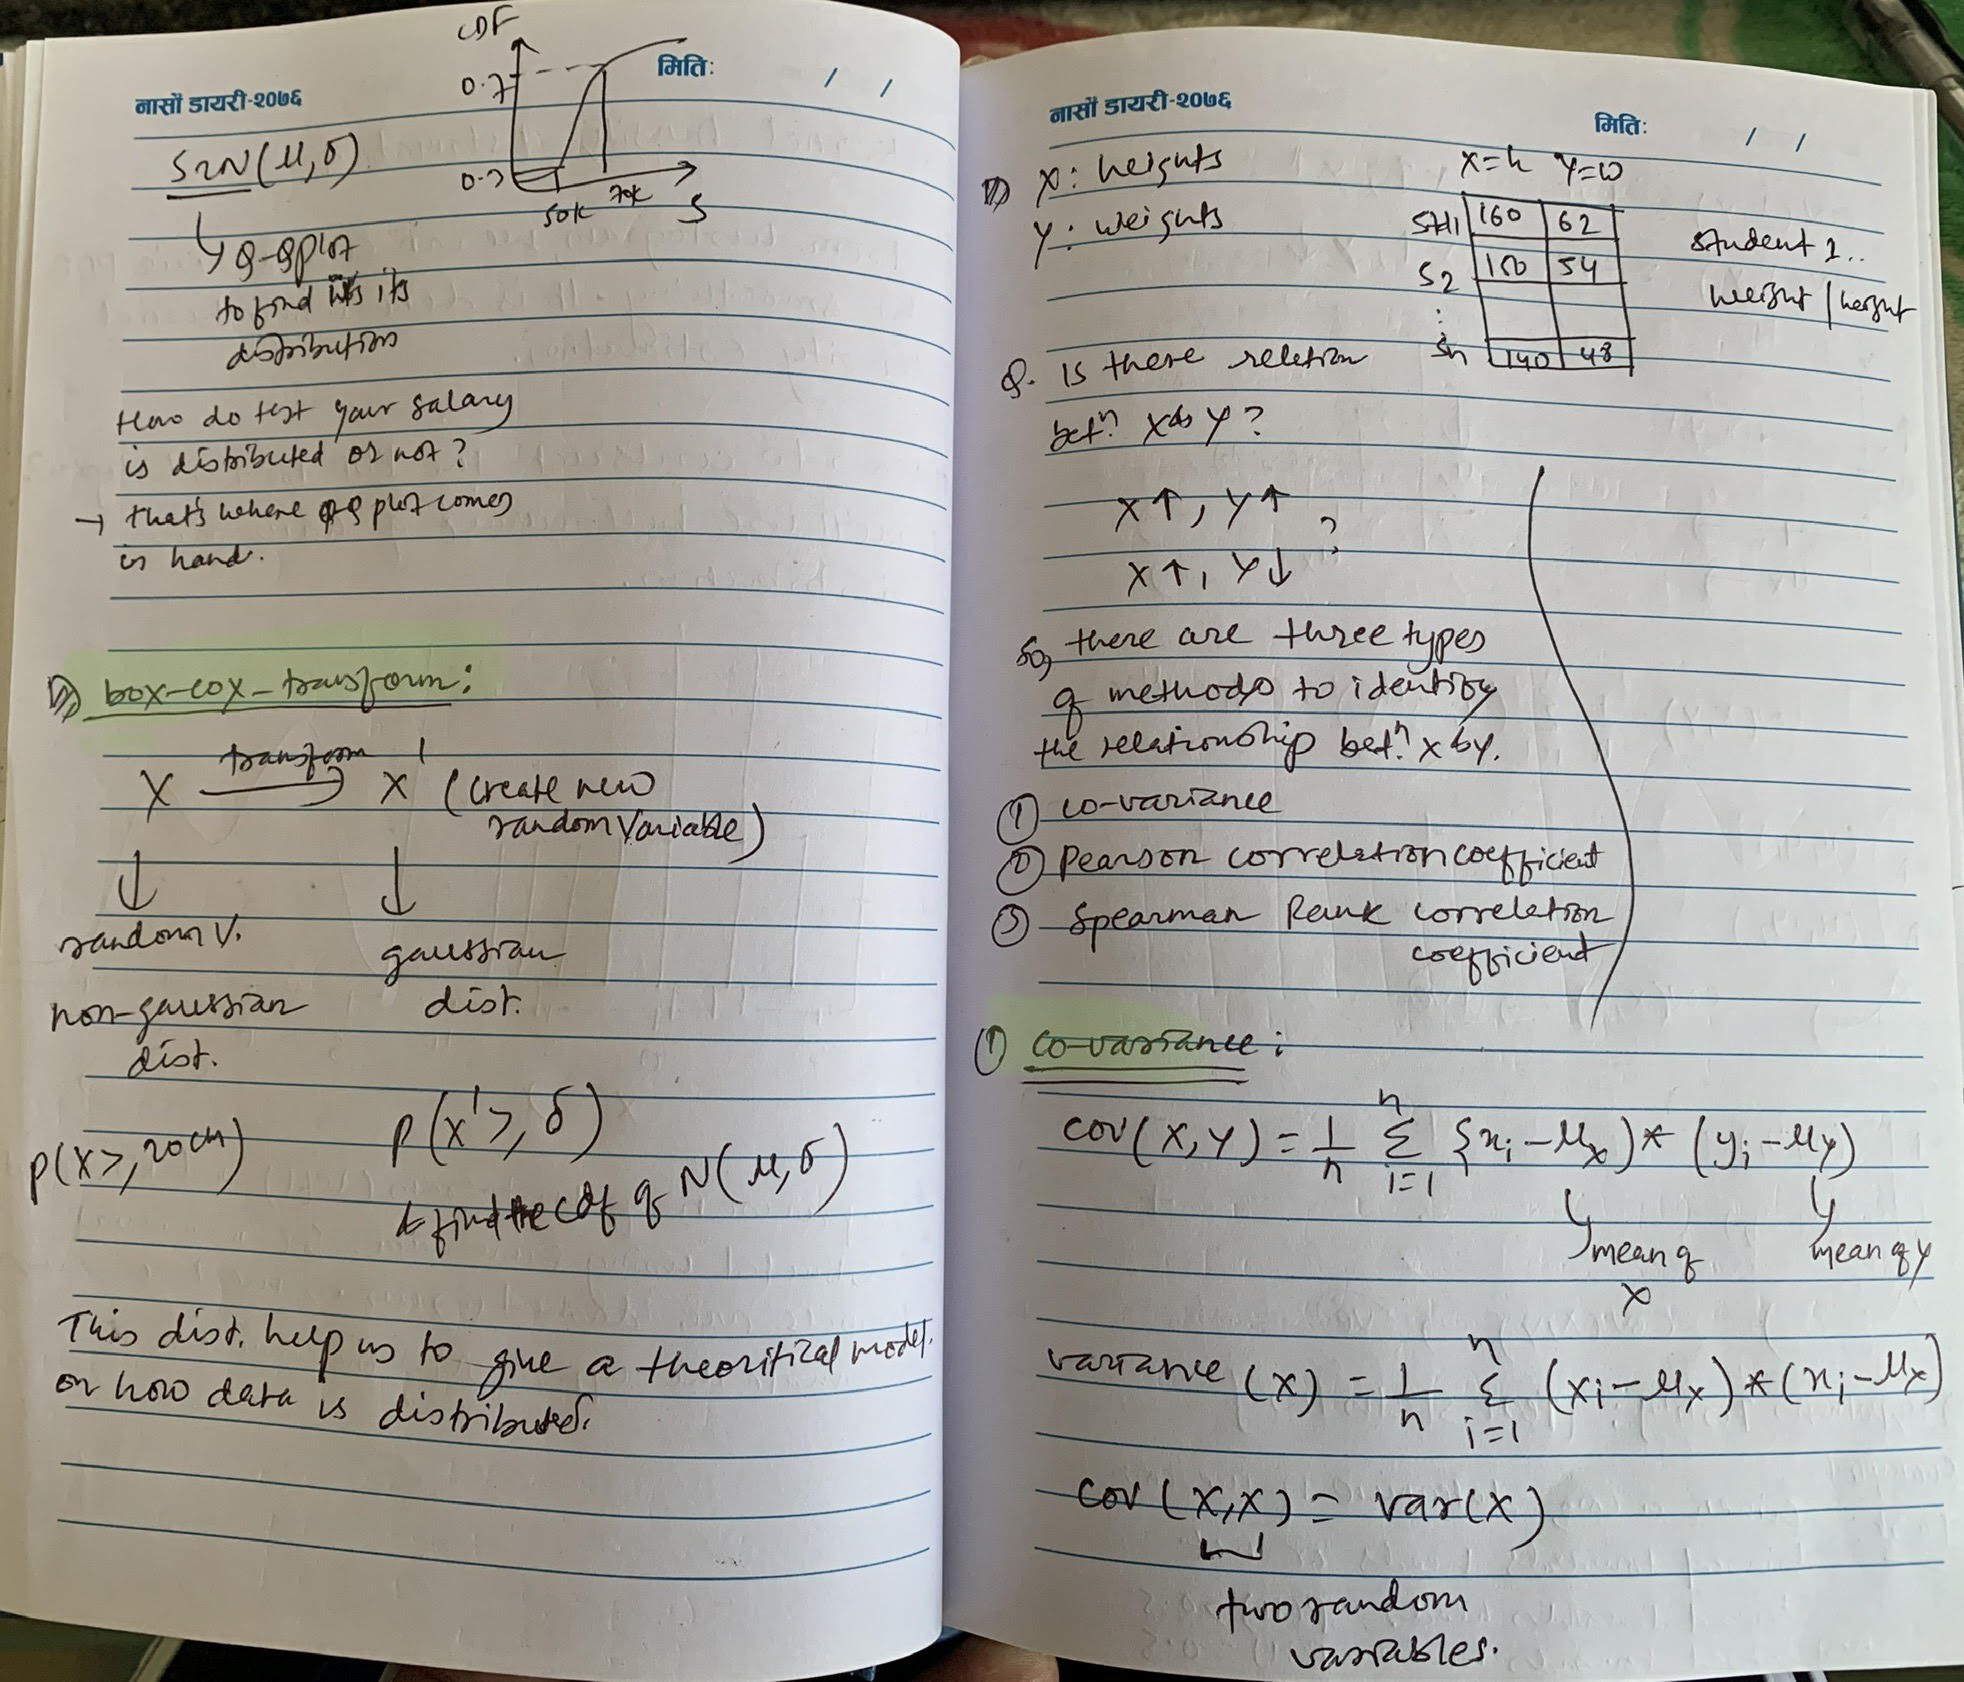 नासों डायरी-२०७६
मिति: / /
CDF
0.7
50K 70K S
S~N(μ,σ)
Q-Qplot
to find its
distribution
How do test your salary
is distributed or not?
→ that's where QQ plot comes
in hand.
box-cox-transform:
transform
X → X' (create new
random Variable)
random V.
non-gaussian
dist.
gaussian
dist.
P(X>,20cm)
P(X'>,δ)
find the cdf of N(μ,σ)
This dist. help us to give a theoritical model.
on how data is distributed.
नासों डायरी-२०७६
मिति: / /
X: heights
Y: weights
X=h Y=w
St1 160 62
S2 150 54
:
Sn 140 48
student 1..
weight / height
Q. Is there relation
betn. X & Y?
X↑, Y↑
?
X↑, Y↓
So, there are three types
of methods to identify
the relationship betn. X & Y.
① co-variance
② Pearson correlation coefficient
③ Spearman Rank correlation
coefficient
① co-variance:
cov(X,Y) = 1/n Σ i=1 n {xi-μx)*(yi-μy)
mean of
X
mean of y
variance (X) = 1/n Σ i=1 n (xi-μx)*(xi-μx)
cov(X,X) = var(X)
two random
variables.